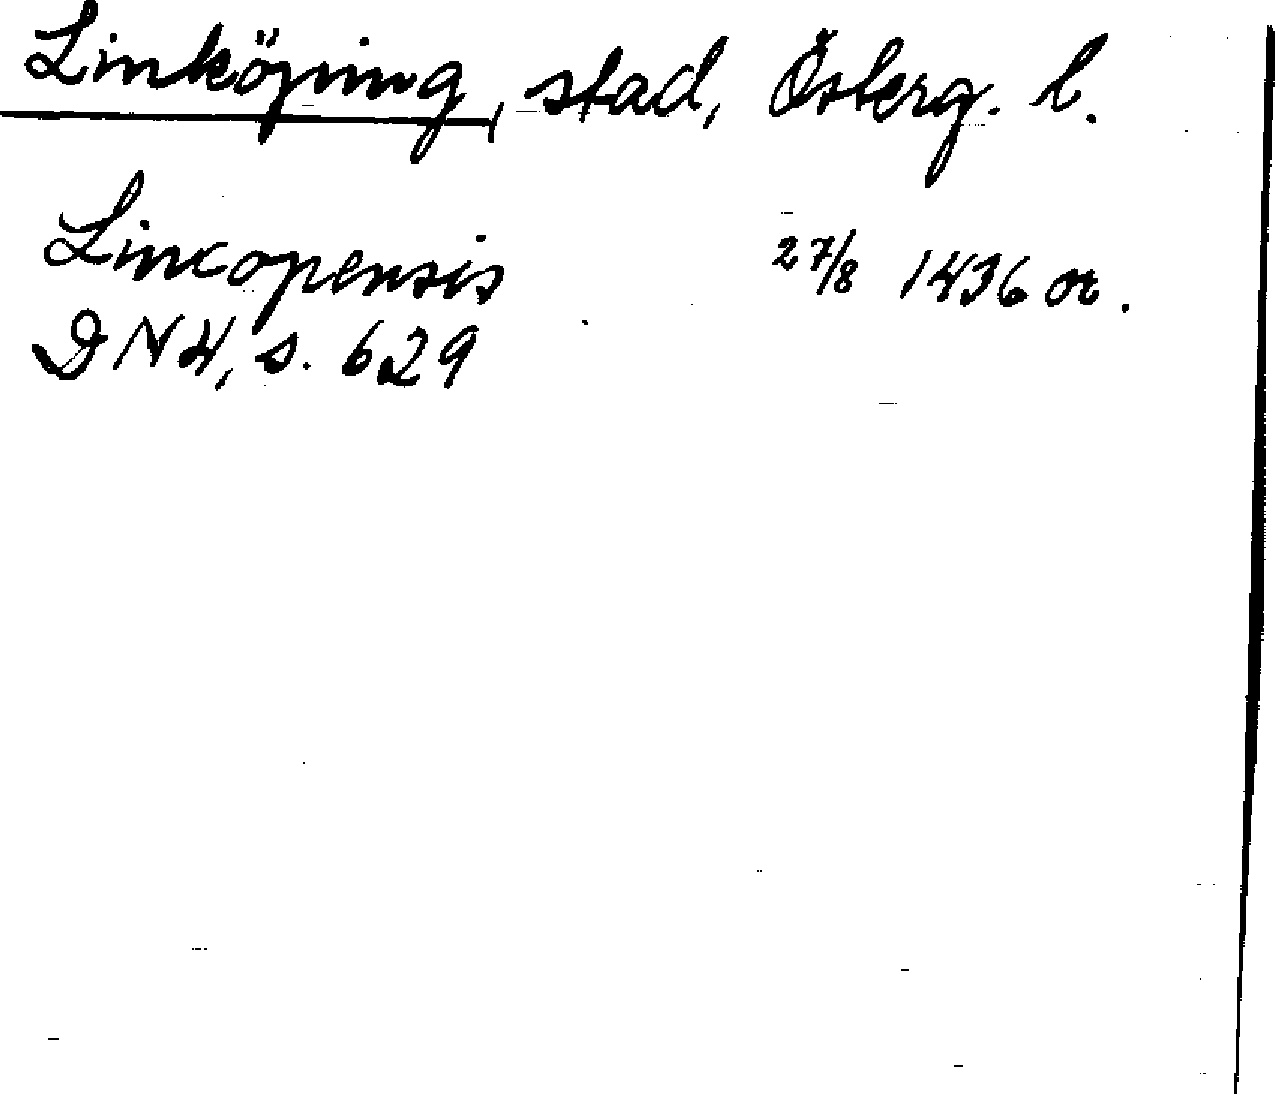 Linköping, stad, Österg. l.
Lincopensis 27/8 1436 or.
DN 4, s. 629